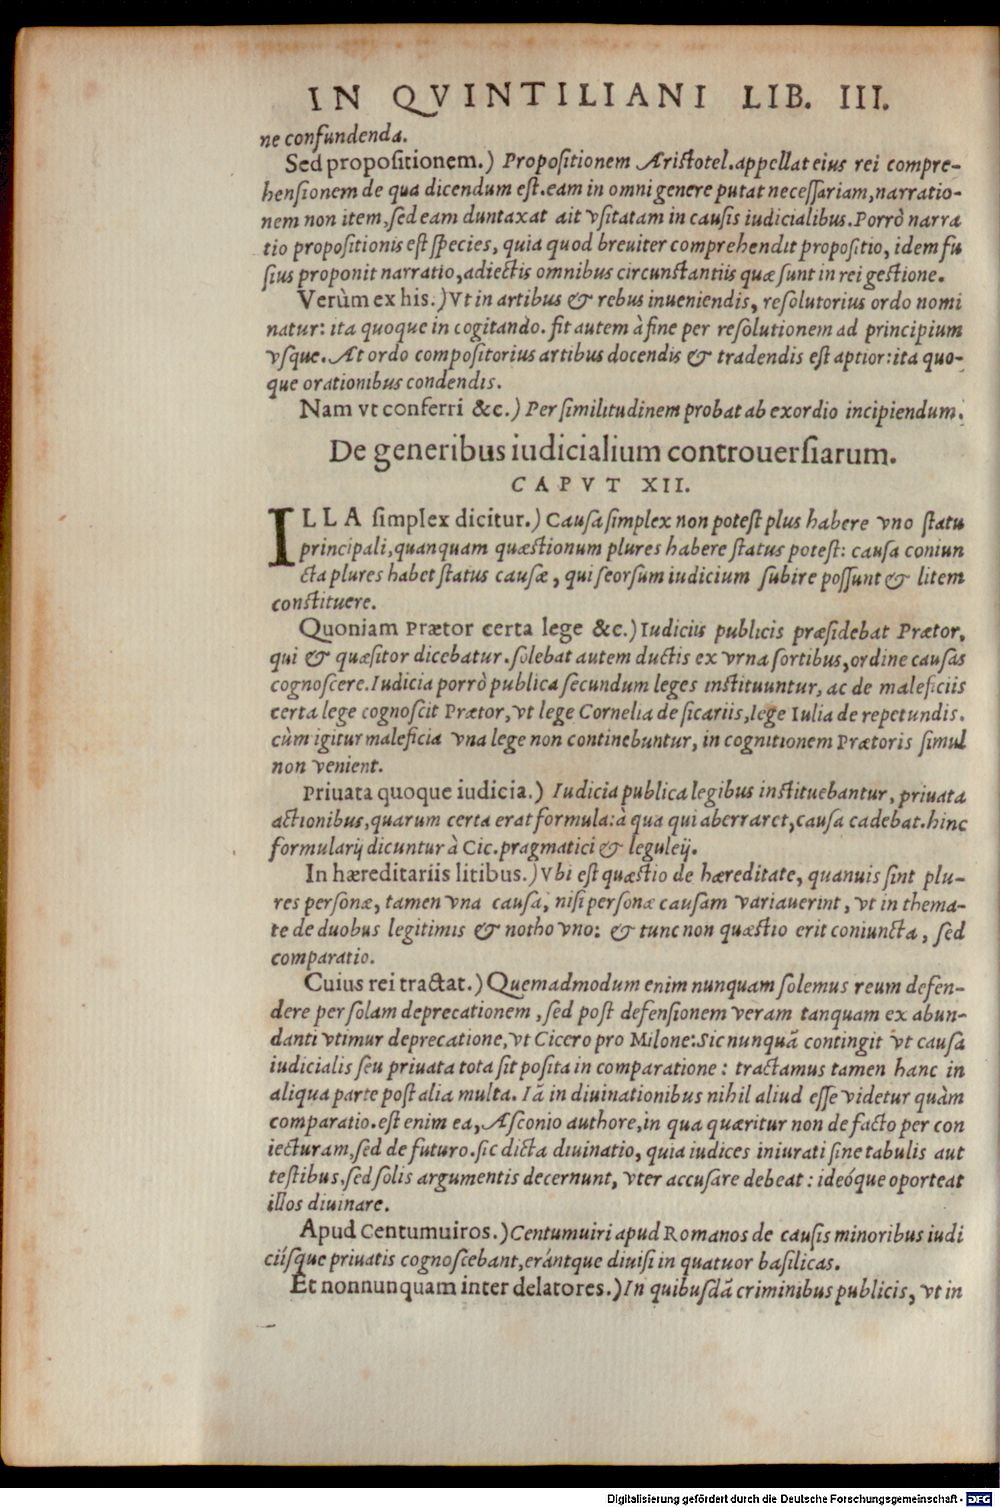 IN QVINTILIANI LIB. III.
ne confundenda.
Sed propositionem.) Propositionem Aristotel. appellat eius rei compre-
hensionem de qua dicendum est. eam in omni genere putat necessariam, narratio-
nem non item, sed eam duntaxat ait vsitatam in causis iudicialibus. Porrò narra
tio propositionis est species, quia quod breuiter comprehendit propositio, idem fu
sius proponit narratio, adiectis omnibus circunstantiis quæ sunt in rei gestione.
Verùm ex his.) Vt in artibus & rebus inueniendis, resolutorius ordo nomi
natur: ita quoque in cogitando. fit autem à fine per resolutionem ad principium
vsque. At ordo compositorius artibus docendis & tradendis est aptior: ita quo-
que orationibus condendis.
Nam vt conferri &c.) Per similitudinem probat ab exordio incipiendum.
De generibus iudicialium controuersiarum.
CAPVT XII.
ILLA simplex dicitur.) Causa simplex non potest plus habere vno statu
principali, quanquam quæstionum plures habere status potest: causa coniun
cta plures habet status causæ, qui seorsum iudicium subire possunt & litem
constituere.
Quoniam Prætor certa lege &c.) Iudiciis publicis præsidebat Prætor,
qui & quæsitor dicebatur. solebat autem ductis ex vrna sortibus, ordine causas
cognoscere. Iudicia porrò publica secundum leges instituuntur, ac de maleficiis
certa lege cognoscit Prætor, vt lege Cornelia de sicariis, lege Iulia de repetundis.
cùm igitur maleficia vna lege non continebuntur, in cognitionem Prætoris simul
non venient.
Priuata quoque iudicia.) Iudicia publica legibus instituebantur, priuata
actionibus, quarum certa erat formula: à qua qui aberraret, causa cadebat. hinc
formularij dicuntur à Cic. pragmatici & leguleij.
In hæreditariis litibus.) Vbi est quæstio de hæreditate, quanuis sint plu-
res personæ, tamen vna causa, nisi personæ causam variauerint, vt in thema-
te de duobus legitimis & notho vno: & tunc non quæstio erit coniuncta, sed
comparatio.
Cuius rei tractat.) Quemadmodum enim nunquam solemus reum defen-
dere per solam deprecationem, sed post defensionem veram tanquam ex abun-
danti vtimur deprecatione, vt Cicero pro Milone: Sic nunquã contingit vt causa
iudicialis seu priuata tota sit posita in comparatione: tractamus tamen hanc in
aliqua parte post alia multa. Iã in diuinationibus nihil aliud esse videtur quàm
comparatio. est enim ea, Asconio authore, in qua quæritur non de facto per con
iecturam, sed de futuro. sic dicta diuinatio, quia iudices iniurati sine tabulis aut
testibus, sed solis argumentis decernunt, vter accusare debeat: ideóque oporteat
illos diuinare.
Apud Centumuiros.) Centumuiri apud Romanos de causis minoribus iudi
ciísque priuatis cognoscebant, erántque diuisi in quatuor basilicas.
Et nonnunquam inter delatores.) In quibusdã criminibus publicis, vt in
Digitalisierung gefördert durch die Deutsche Forschungsgemeinschaft - DFG